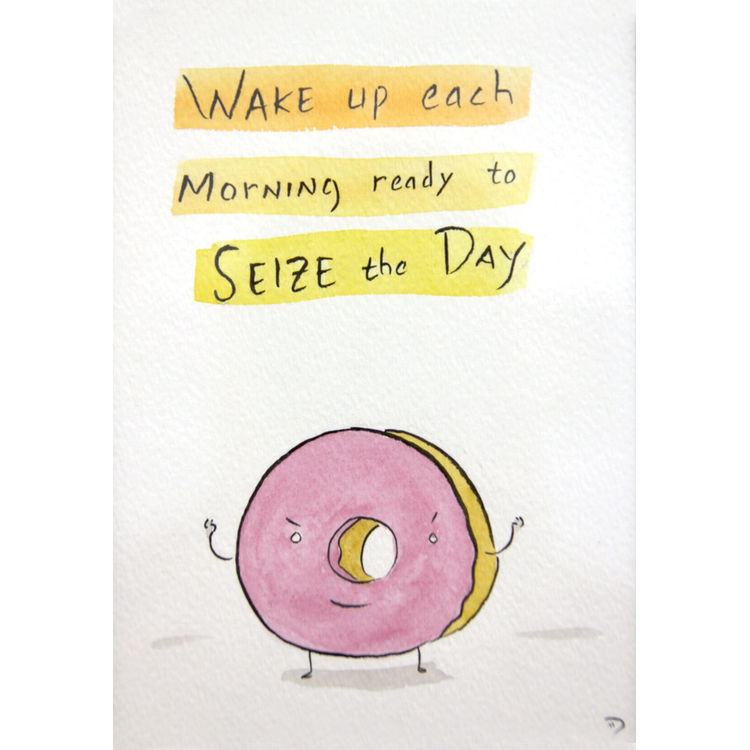 WAKE up each
MORNING ready to
SEIZE the DAY